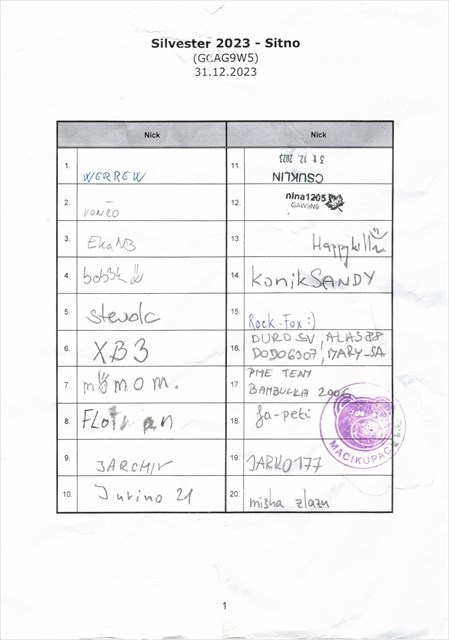 Silvester 2023 - Sitno
(GCAG9W5)
31.12.2023
Nick
Nick
1. WERREW
2. vonzo
3. EkaNB
4.
5. stevolc
6. XB3
7. momom.
8. FLO
9. JARCHIV
10. Jurino 21
11. 31. 12. 2023
CSUKLIN
12. nina1205
13.
14. konikSANDY
15. Rock-Fox :)
16. DURO SV, ALAS
DODO6307, MARY_SA
17. PME TEAM
BAMBULKA 2006
18. Ja-peti
MACIKUPAC
19. JARKO177
20. misha zlazu
1